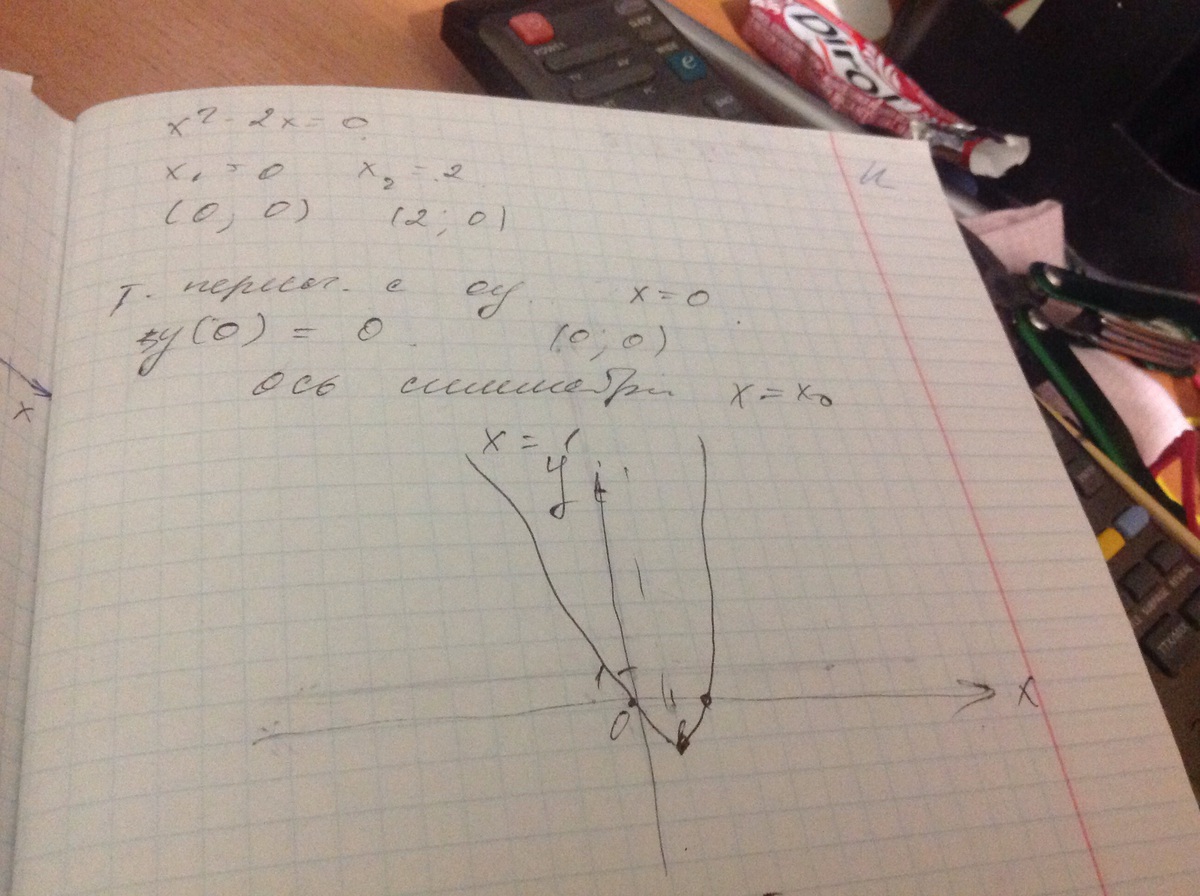 x² - 2x = 0
x₁ = 0 x₂ = 2
(0; 0) (2; 0)
т. перес. с оу x = 0
y(0) = 0 (0; 0)
ось симметрии x = x₀
x = 1
y
1 1
0
x
Dirol
POWER
e